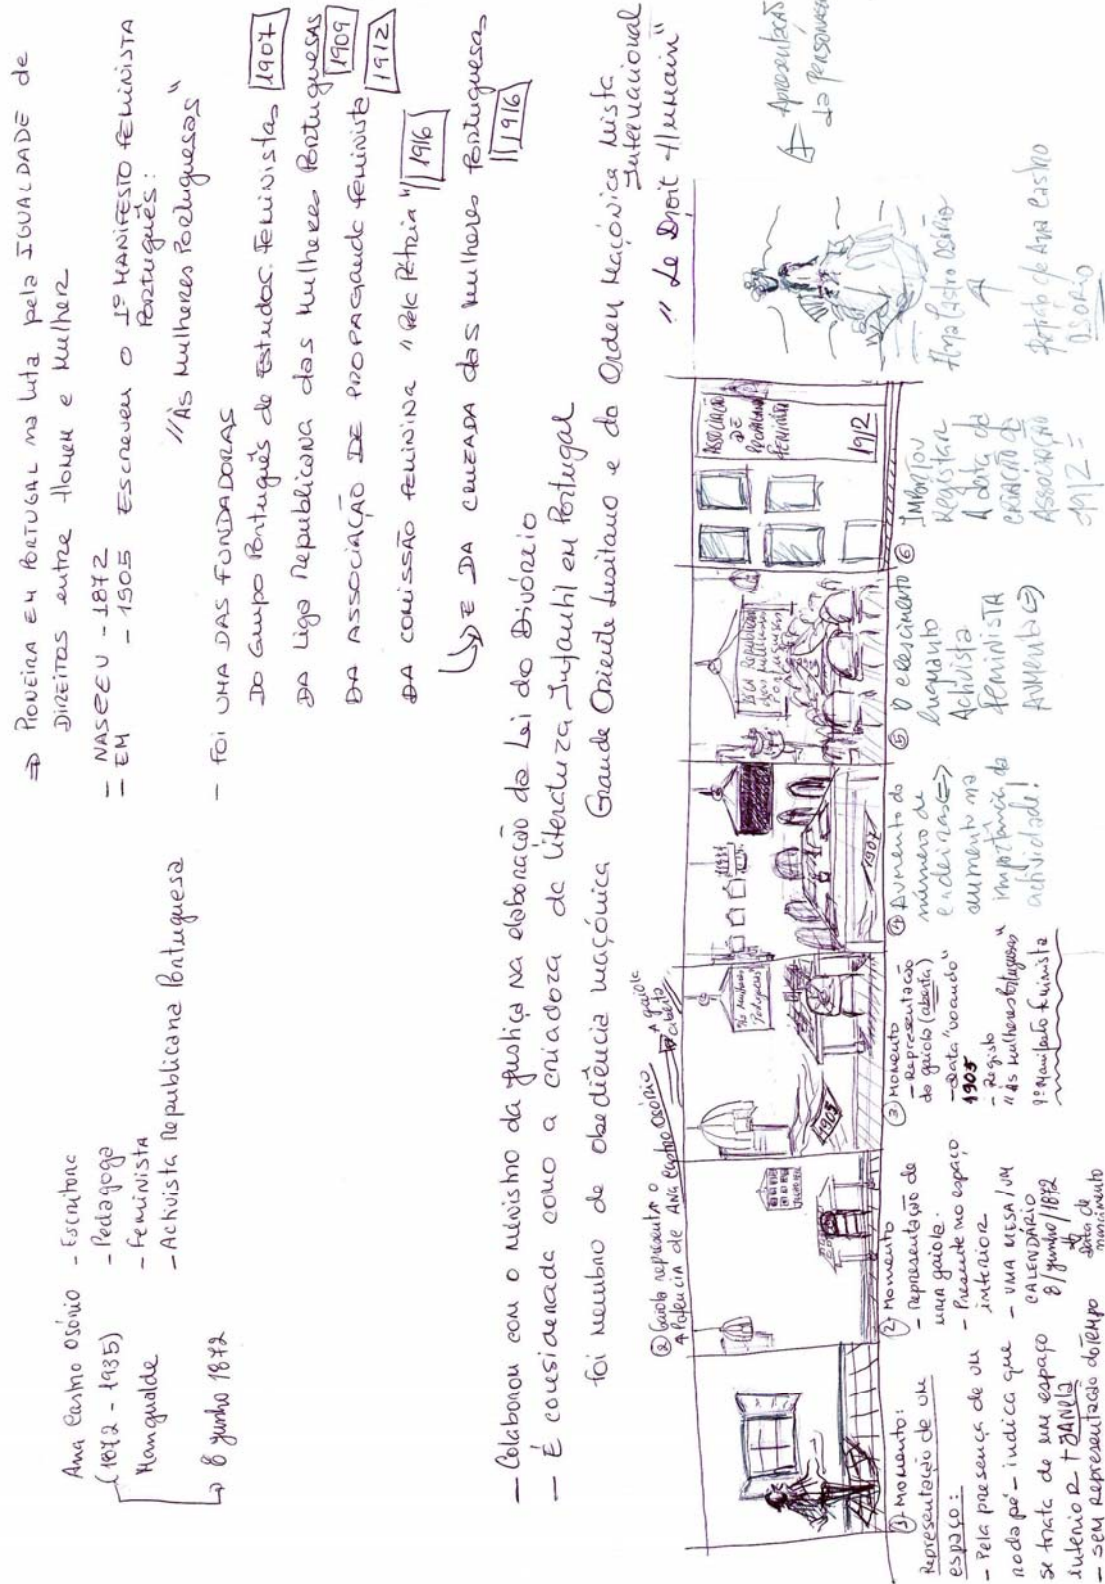 Ana Castro Osório - Escritora
(1872 - 1935) - Pedagoga
Mangualde - Feminista
- Activista Republicana Portuguesa
8 junho 1872
⇒ PIONEIRA EM PORTUGAL na luta pela IGUALDADE de
DIREITOS entre Homem e Mulher
- NASCEU - 1872
- EM - 1905 ESCREVEU O 1º MANIFESTO FEMINISTA
Português:
"As Mulheres Portuguesas"
- Foi UMA DAS FUNDADORAS
DO Grupo Português de Estudos Feministas 1907
DA Liga Republicana das Mulheres Portuguesas 1909
DA ASSOCIAÇÃO DE PROPAGANDA Feminista 1912
DA COMISSÃO FEMININA "Pela Pátria" 1916
E DA CRUZADA das Mulheres Portuguesas
1916
- Colaborou com o ministro da Justiça na elaboração da Lei do Divórcio
- É considerada como a criadora da Literatura Infantil em Portugal
foi membro de obediência maçónica Grande Oriente Lusitano e da Ordem Maçónica Mista
Internacional
"Le Droit Humain"
② Gaiola representa o
A Patência de ANA Castro OSÓRIO
A gaiola
aberta
JUNHO
1905
As Mulheres
Portuguesas
1907
Liga Republicana
das Mulheres
Portuguesas
ASSOCIAÇÃO
DE
PROPAGANDA
FEMINISTA
1912
① MOMENTO:
Representação de um
espaço:
- Pela presença de um
rodapé - indica que
se trata de um espaço
interior + JANELA
- SEM Representação do TEMPO
② MOMENTO
- representação de
uma gaiola.
- Presente no espaço
interior
- UMA MESA/UM
CALENDÁRIO
8/junho/1872
data de
nascimento
③ MOMENTO
- Representação
da gaiola (aberta)
- data "voando"
1905
- Registo
"As Mulheres Portuguesas"
1º Manifesto Feminista
④ AUMENTO do
número de
cadeiras ⇔
aumento na
importância da
actividade!
⑤ O crescimento
enquanto
Activista
Feminista
AUMENTA
⑥ IMPORTOU
Registar
A data da
criação da
ASSOCIAÇÃO
1912 =
Ana Castro Osório
Retrato de Ana Castro
OSORIO
Apresentação
da personagem